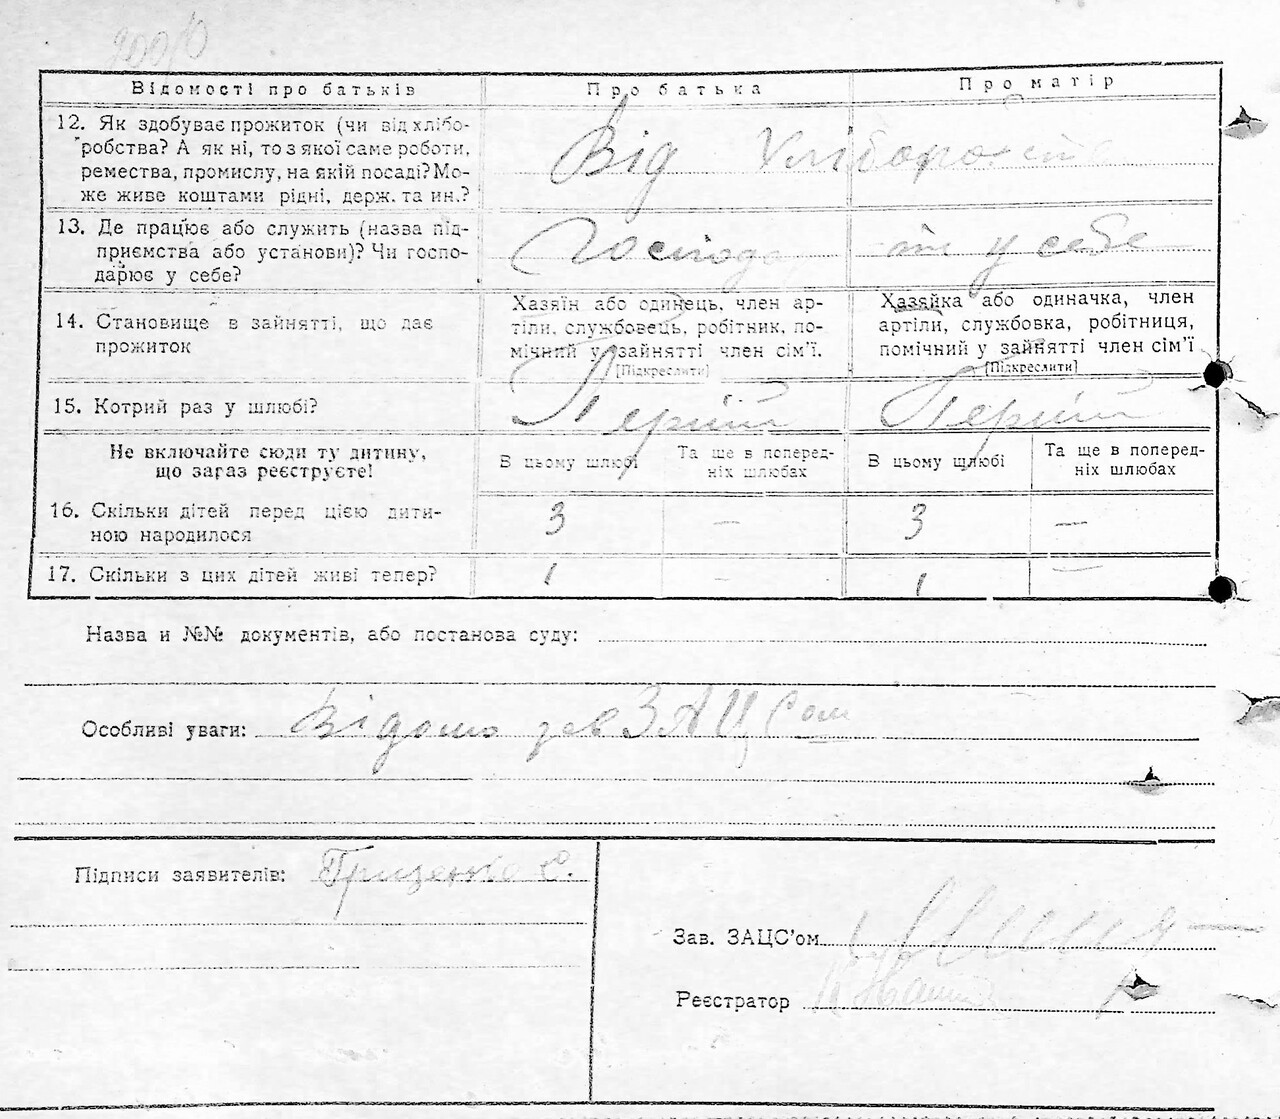 Відомості про батьків
Про батька
Про матір
12. Як здобуває прожиток (чи від хлібо-
робства? А як ні, то з якої саме роботи,
ремества, промислу, на якій посаді? Мо-
же живе коштами рідні, держ. та ин.?
Від
13. Де працює або служить (назва під-
приємства або установи)? Чи госпо-
дарює у себе?
у себе
14. Становище в зайнятті, що дає
прожиток
Хазяїн або одинець, член ар-
тіли, службовець, робітник, по-
мічний у зайнятті член сім'ї.
[Підкреслити]
Хазяйка або одиначка, член
артіли, службовка, робітниця,
помічний у зайнятті член сім'ї
[Підкреслити]
15. Котрий раз у шлюбі?
Перший
Перший
Не включайте сюди ту дитину,
що зараз реєструєте!
В цьому шлюбі
Та ще в поперед-
ніх шлюбах
В цьому шлюбі
Та ще в поперед-
ніх шлюбах
16. Скільки дітей перед цією дити-
ною народилося
3
—
3
—
17. Скільки з цих дітей живі тепер?
1
—
1
—
Назва и №№ документів, або постанова суду:
Особливі уваги: Відомо зав ЗАЦСом
Підписи заявителів: Гриценко С.
Зав. ЗАЦС'ом
Реєстратор